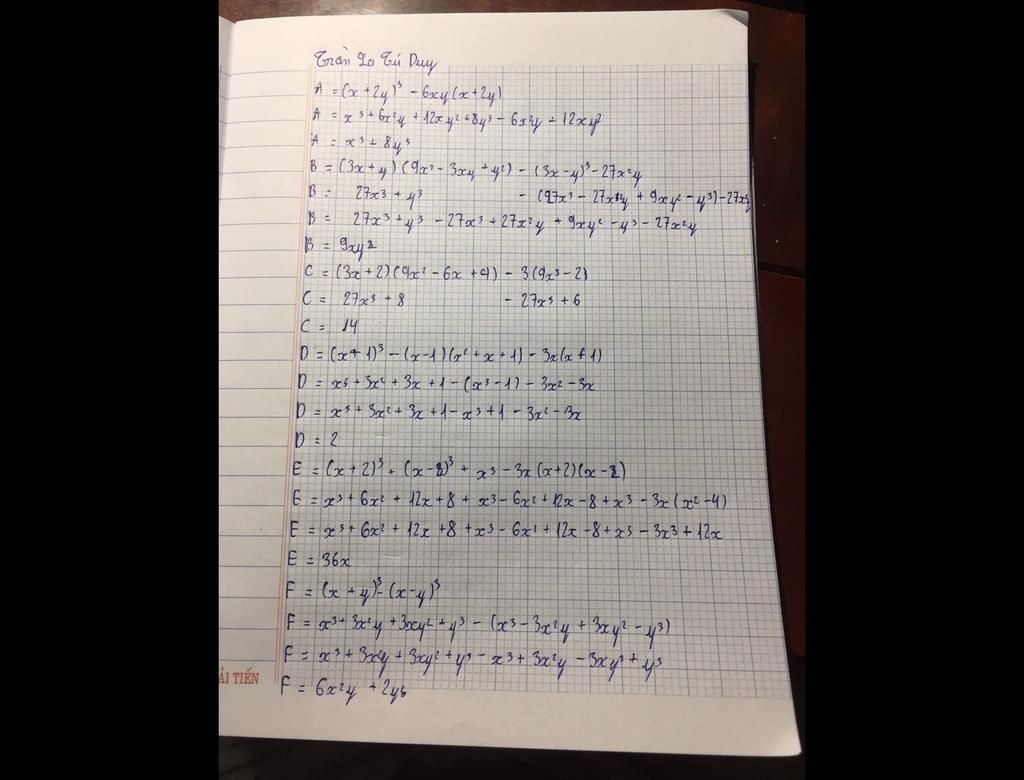 Trần Lo Tú Duy
A = (x + 2y)³ - 6xy(x + 2y)
A = x³ + 6x²y + 12xy² + 8y³ - 6x²y - 12xy²
A = x³ + 8y³
B = (3x + y)(9x² - 3xy + y²) - (3x - y)³ - 27x²y
B = 27x³ + y³ - (27x³ - 27x²y + 9xy² - y³) - 27x²y
B = 27x³ + y³ - 27x³ + 27x²y + 9xy² - y³ - 27x²y
B = 9xy²
C = (3x + 2)(9x² - 6x + 4) - 3(9x³ - 2)
C = 27x³ + 8 - 27x³ + 6
C = 14
D = (x + 1)³ - (x - 1)(x² + x + 1) - 3x(x + 1)
D = x³ + 3x² + 3x + 1 - (x³ - 1) - 3x² - 3x
D = x³ + 3x² + 3x + 1 - x³ + 1 - 3x² - 3x
D = 2
E = (x + 2)³ + (x - 2)³ + x³ - 3x(x + 2)(x - 2)
E = x³ + 6x² + 12x + 8 + x³ - 6x² + 12x - 8 + x³ - 3x(x² - 4)
E = x³ + 6x² + 12x + 8 + x³ - 6x² + 12x - 8 + x³ - 3x³ + 12x
E = 36x
F = (x + y)³ - (x - y)³
F = x³ + 3x²y + 3xy² + y³ - (x³ - 3x²y + 3xy² - y³)
F = x³ + 3x²y + 3xy² + y³ - x³ + 3x²y - 3xy² + y³
ẢI TIẾN
F = 6x²y + 2y³